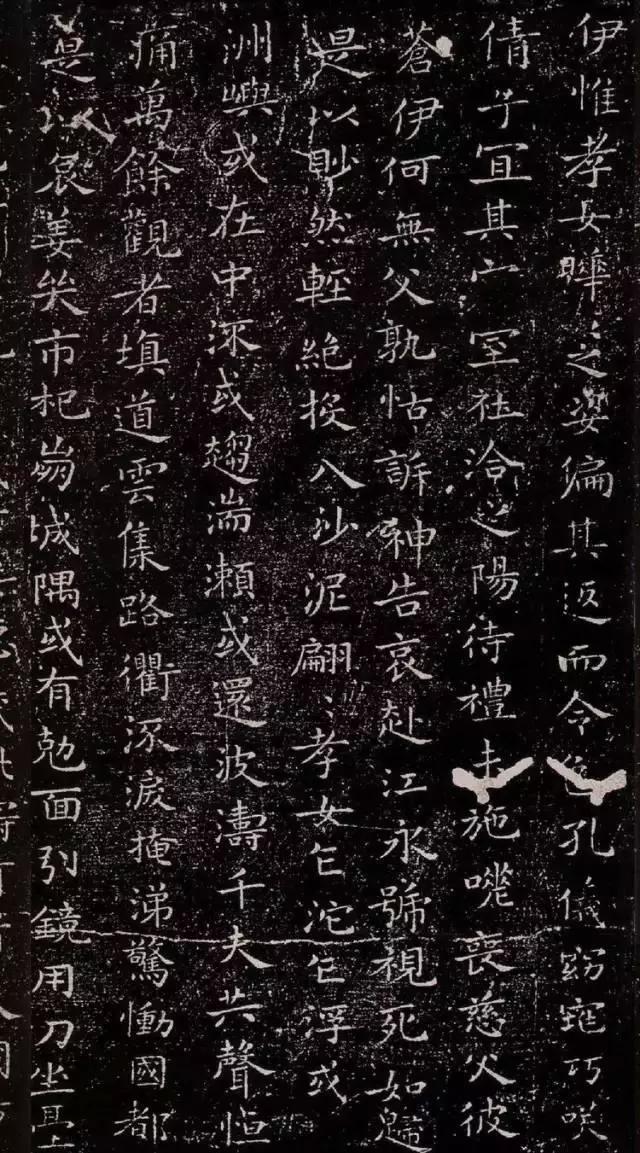 伊惟孝女曄〻之姿偏其返而令色孔儀窈窕巧咲
倩兮冝其家室在洽之陽待禮未施嗟喪慈父彼
蒼伊何無父孰怙訴神告哀赴江永號視死如歸
是以眇然輕絕投入沙泥翩〻孝女乍沉乍浮或
洲嶼或在中流或趨湍瀨或還波濤千夫共聲悼
痛萬餘觀者填道雲集路衢流淚掩涕驚慟國都
是以哀姜哭市杞崩城隅或有剋面引鏡用刀坐臺